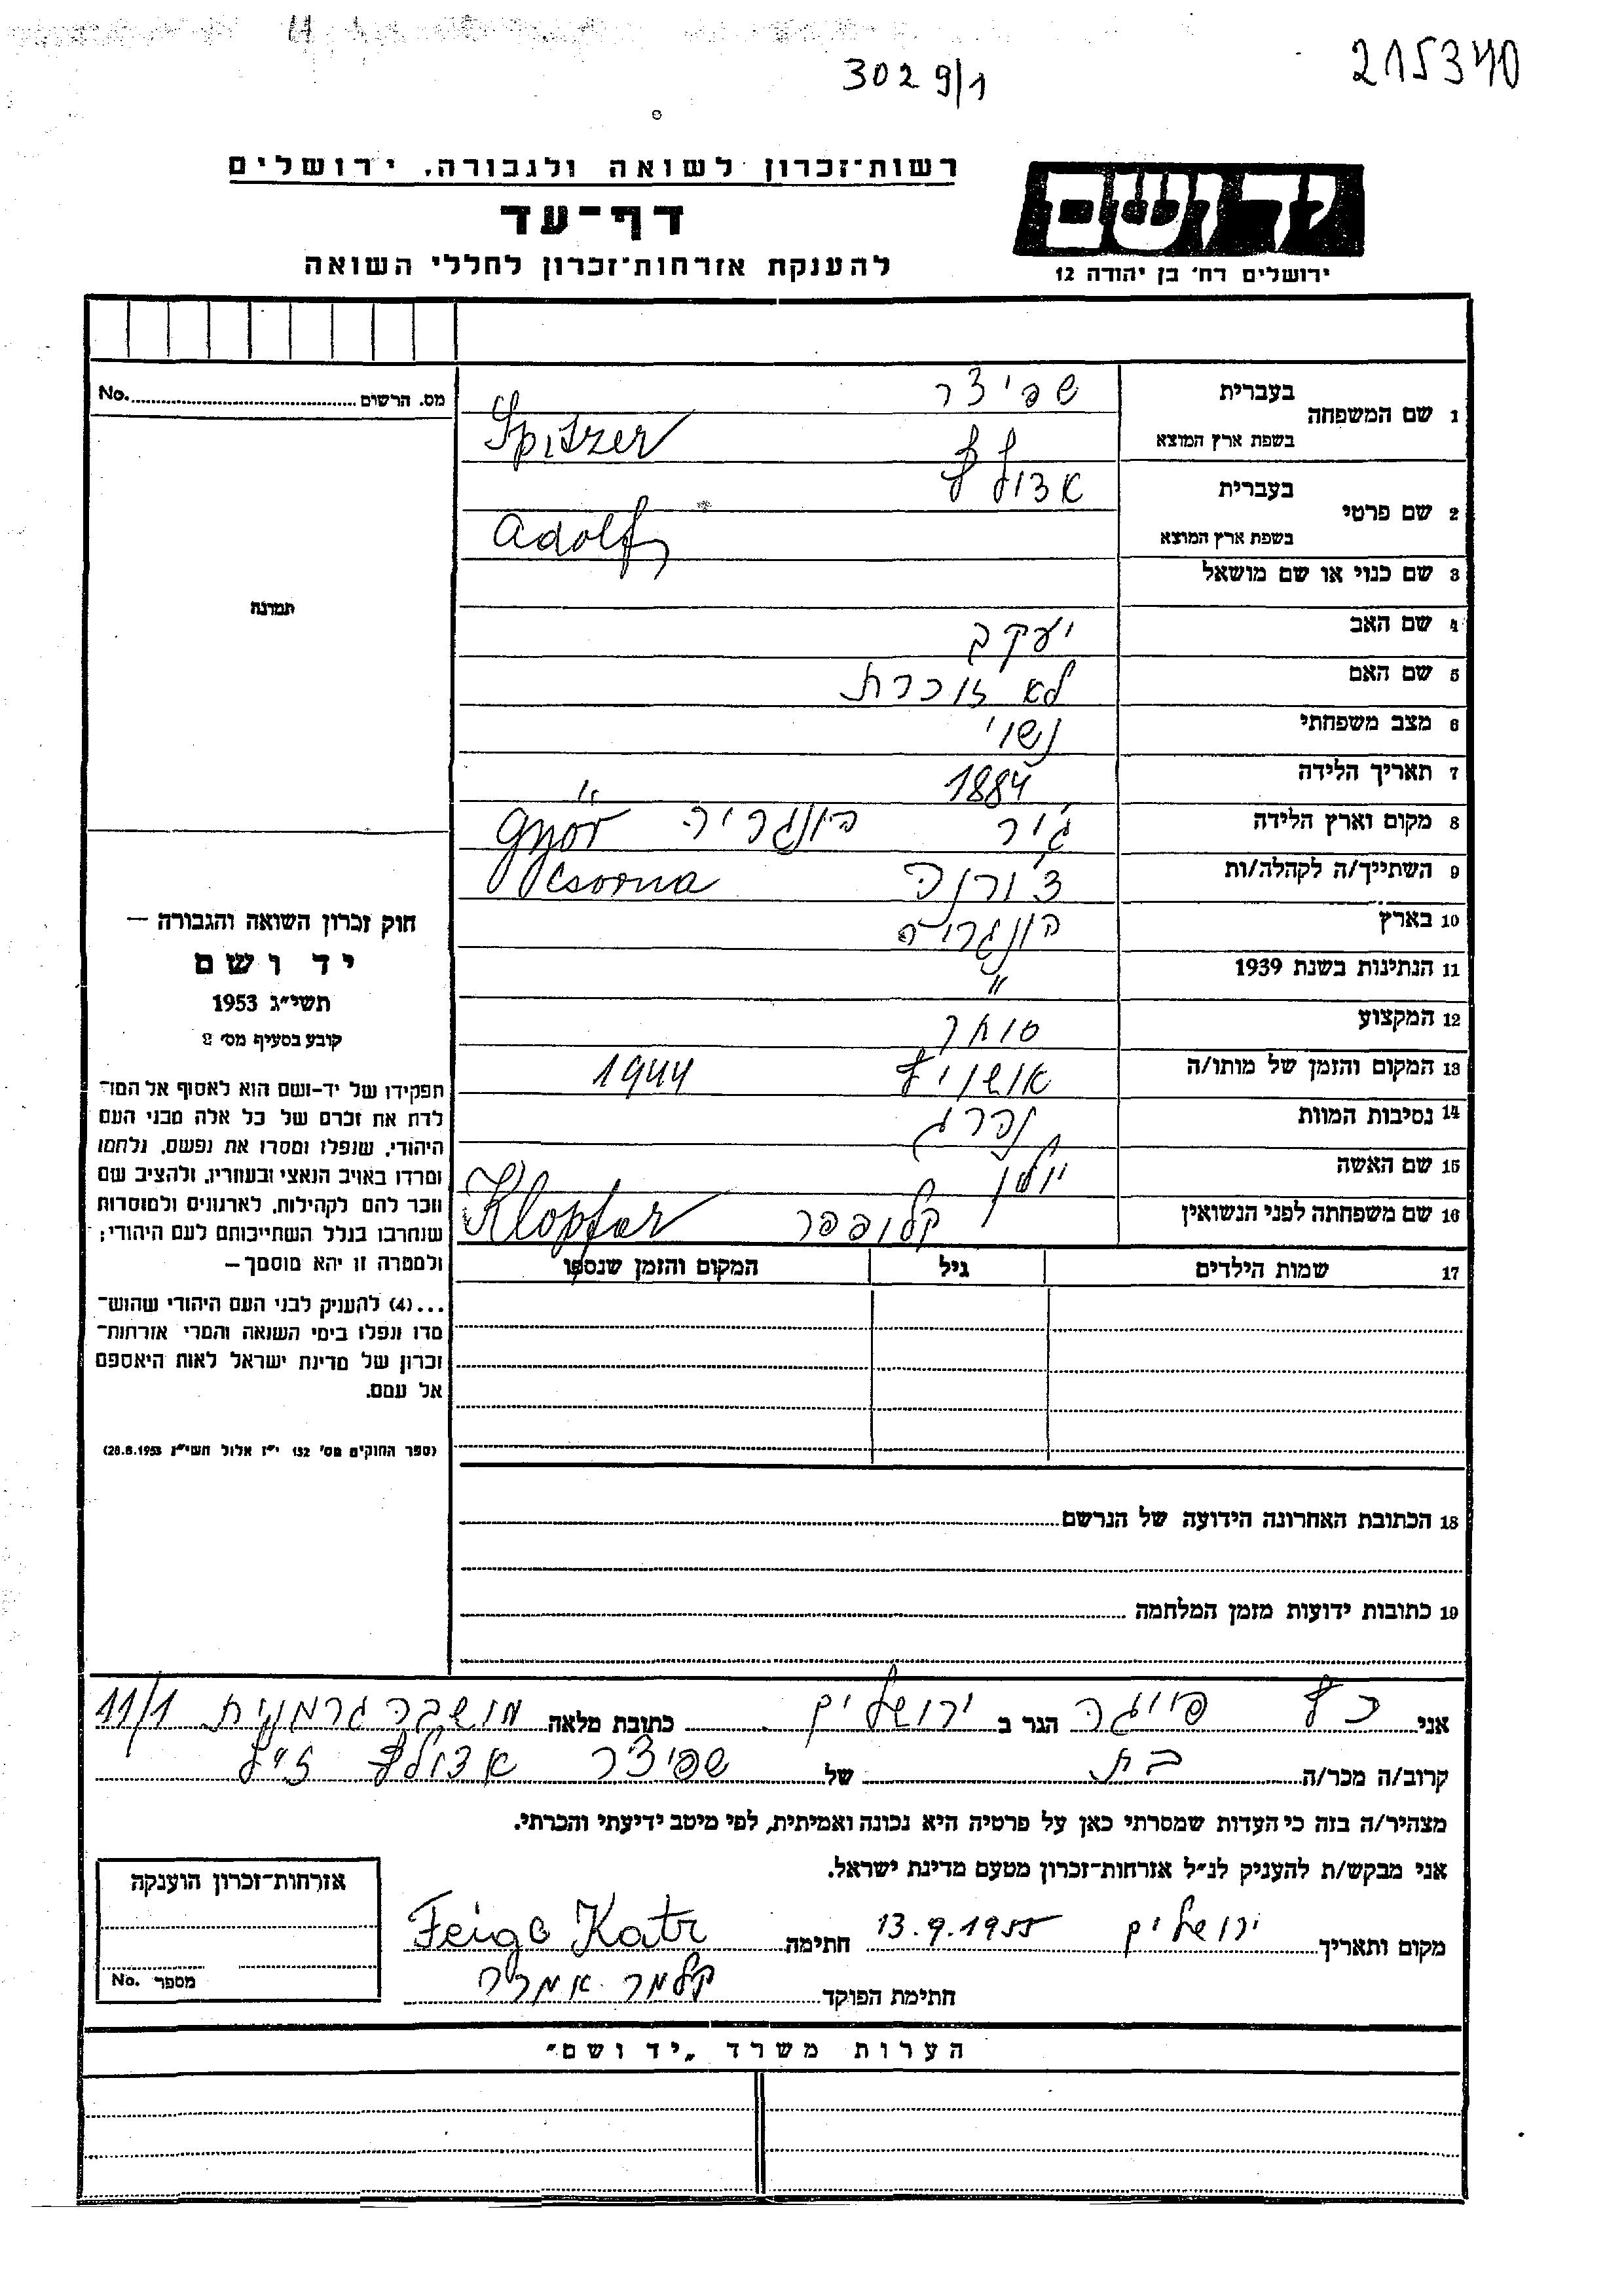 215340
3029/1
רשות־זכרון לשואה ולגבורה, ירושלים
יד ושם
דף־עד
להענקת אזרחות־זכרון לחללי השואה
ירושלים רח' בן יהודה 12
מס. הרשום No.
1 שם המשפחה בעברית שפיצר
בשפת ארץ המוצא Spitzer
2 שם פרטי בעברית אדולף
בשפת ארץ המוצא Adolf
3 שם כנוי או שם מושאל
תמונה
4 שם האב יעקב
5 שם האם לא זוכרת
6 מצב משפחתי נשוי
7 תאריך הלידה 1884
8 מקום וארץ הלידה ג'יר הונגריה Györ
9 השתייך/ה לקהלה/ות צ'ורנה Csorna
10 בארץ הונגריה
11 הנתינות בשנת 1939 "
12 המקצוע סוחר
13 המקום והזמן של מותו/ה אושויץ 1944
14 נסיבות המוות נהרג
15 שם האשה
16 שם משפחתה לפני הנשואין קלופפר Klopfer
17 שמות הילדים גיל המקום והזמן שנספו
18 הכתובת האחרונה הידועה של הנרשם
19 כתובות ידועות מזמן המלחמה
חוק זכרון השואה והגבורה —
יד ושם
תשי"ג 1953
קובע בסעיף מס' 2
תפקידו של יד-ושם הוא לאסוף אל המו־
לדת את זכרם של כל אלה מבני העם
היהודי, שנפלו ומסרו את נפשם, נלחמו
ומרדו באויב הנאצי ובעוזריו, ולהציב שם
וזכר להם לקהילות, לארגונים ולמוסדות
שנחרבו בגלל השתייכותם לעם היהודי;
ולמטרה זו יהא מוסמך —
...(4) להעניק לבני העם היהודי שהוש־
מדו ונפלו בימי השואה והמרי אזרחות־
זכרון של מדינת ישראל לאות היאספם
אל עמם.
(ספר החוקים מס' 132 י"ז אלול תשי"ג 28.8.1953)
אני כץ פייגה הגר ב ירושלים כתובת מלאה מושבה גרמנית 11/1
קרוב/ה מכר/ה בת של שפיצר אדולף ז"ל
מצהיר/ה בזה כי העדות שמסרתי כאן על פרטיה היא נכונה ואמיתית, לפי מיטב ידיעתי והכרתי.
אני מבקש/ת להעניק לנ"ל אזרחות-זכרון מטעם מדינת ישראל.
מקום ותאריך ירושלים 13.9.1955 חתימה Feige Katz
חתימת הפוקד
אזרחות-זכרון הוענקה
מספר No.
הערות משרד „יד ושם"